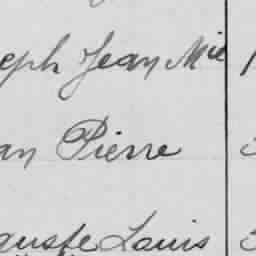 eph Jean Mie
an Pierre
guste Louis